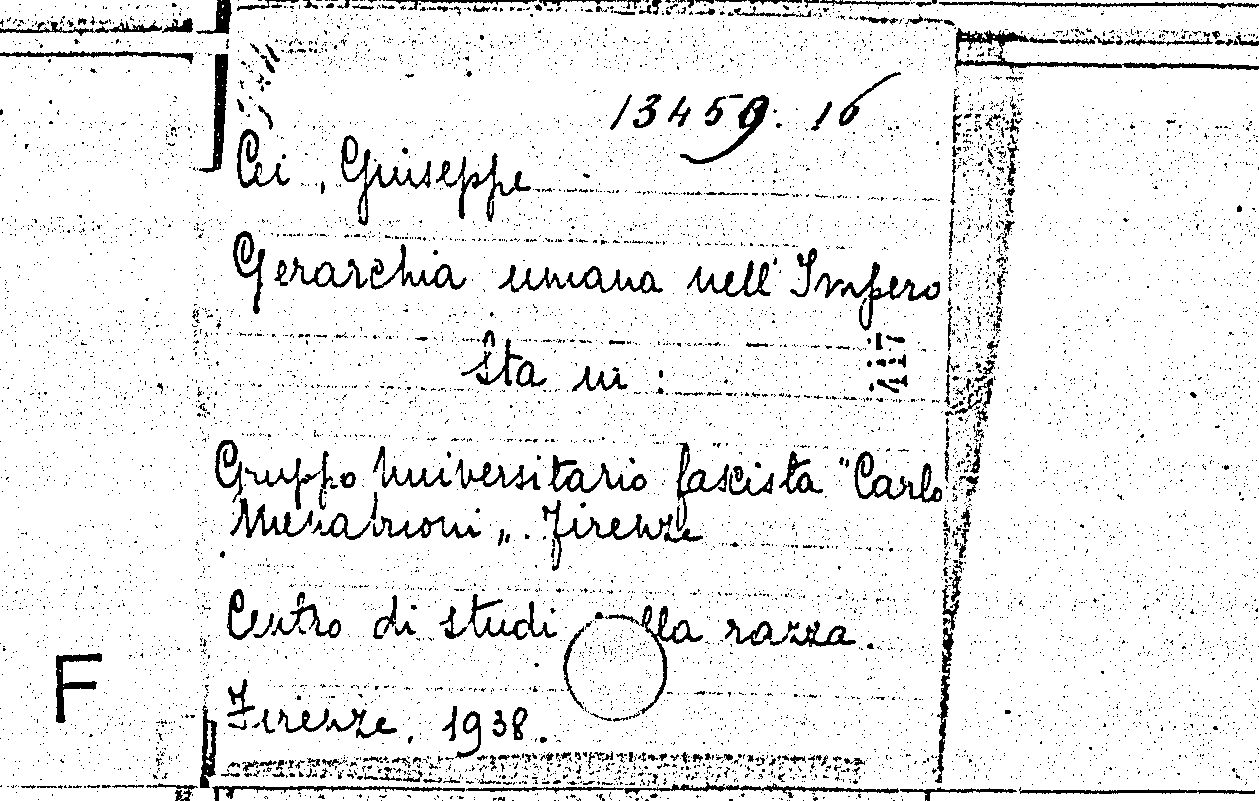 13459.16
Cei, Giuseppe
Gerarchia umana nell'Impero
117
Sta in :
Gruppo Universitario fascista "Carlo
„. Firenze
Centro di studi lla razza.
F
Firenze, 1938.